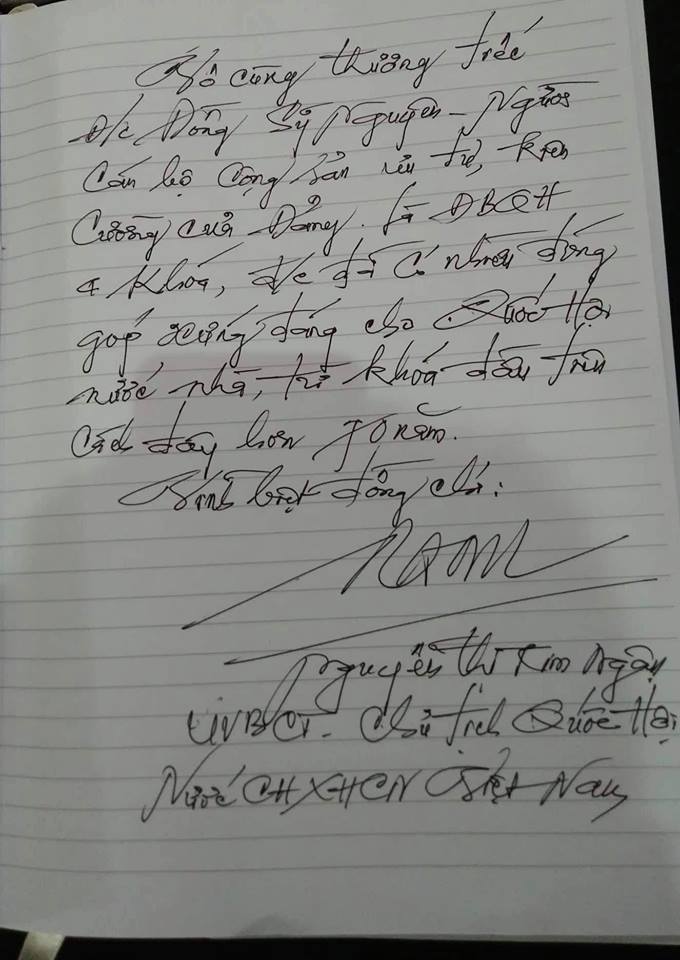 Vô cùng thương tiếc
Đ/c Đồng Sỹ Nguyên - Người
Cán bộ Cộng sản ưu tú, kiên
Cường của Đảng. Là ĐBQH
4 khóa, đ/c đã có nhiều đóng
góp xứng đáng cho Quốc Hội
nước nhà, từ khóa đầu tiên
Cách đây hơn 70 năm.
Vĩnh biệt đồng chí!
Nguyễn Thị Kim Ngân
UVBCT - Chủ tịch Quốc Hội
Nước CHXHCN Việt Nam